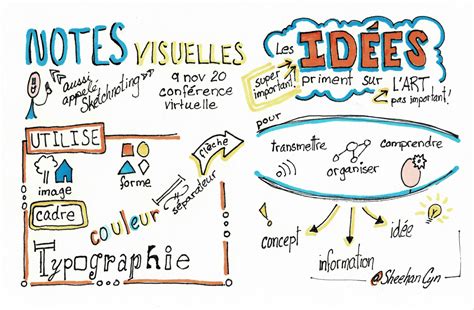 NOTES VISUELLES
aussi appelé
Sketchnoting
9 nov 20
conférence
virtuelle
UTILISE
image
forme
cadre
couleur
Typographie
flèche
séparateur
Les IDÉES
super important!
priment sur L'ART
pas important!
pour
transmettre
organiser
comprendre
concept
information
idée
@SheehanCyn